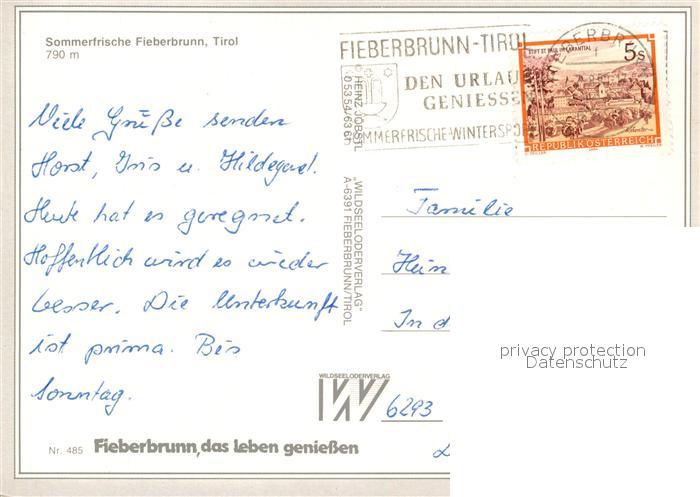 Sommerfrische Fieberbrunn, Tirol
790 m
FIEBERBRUNN-TIROL
DEN URLAU
GENIESSE
MMERFRISCHE-WINTERSPO
FIEBERBR
STIFT ST. PAUL IM LAVANTTAL
5s
REPUBLIK ÖSTERREICH
HEINZ JOBSTL
05354/6361
Viele Grüße senden
Horst, Iris u. Hildegard.
Heute hat es geregnet.
Hoffentlich wird es wieder
besser. Die Unterkunft
ist prima. Bis
Sonntag.
"WILDSEELODERVERLAG"
A-6391 FIEBERBRUNN/TIROL
Familie
Hein
In d
6293
privacy protection
Datenschutz
WILDSEELODERVERLAG
Nr. 485 Fieberbrunn, das Leben genießen